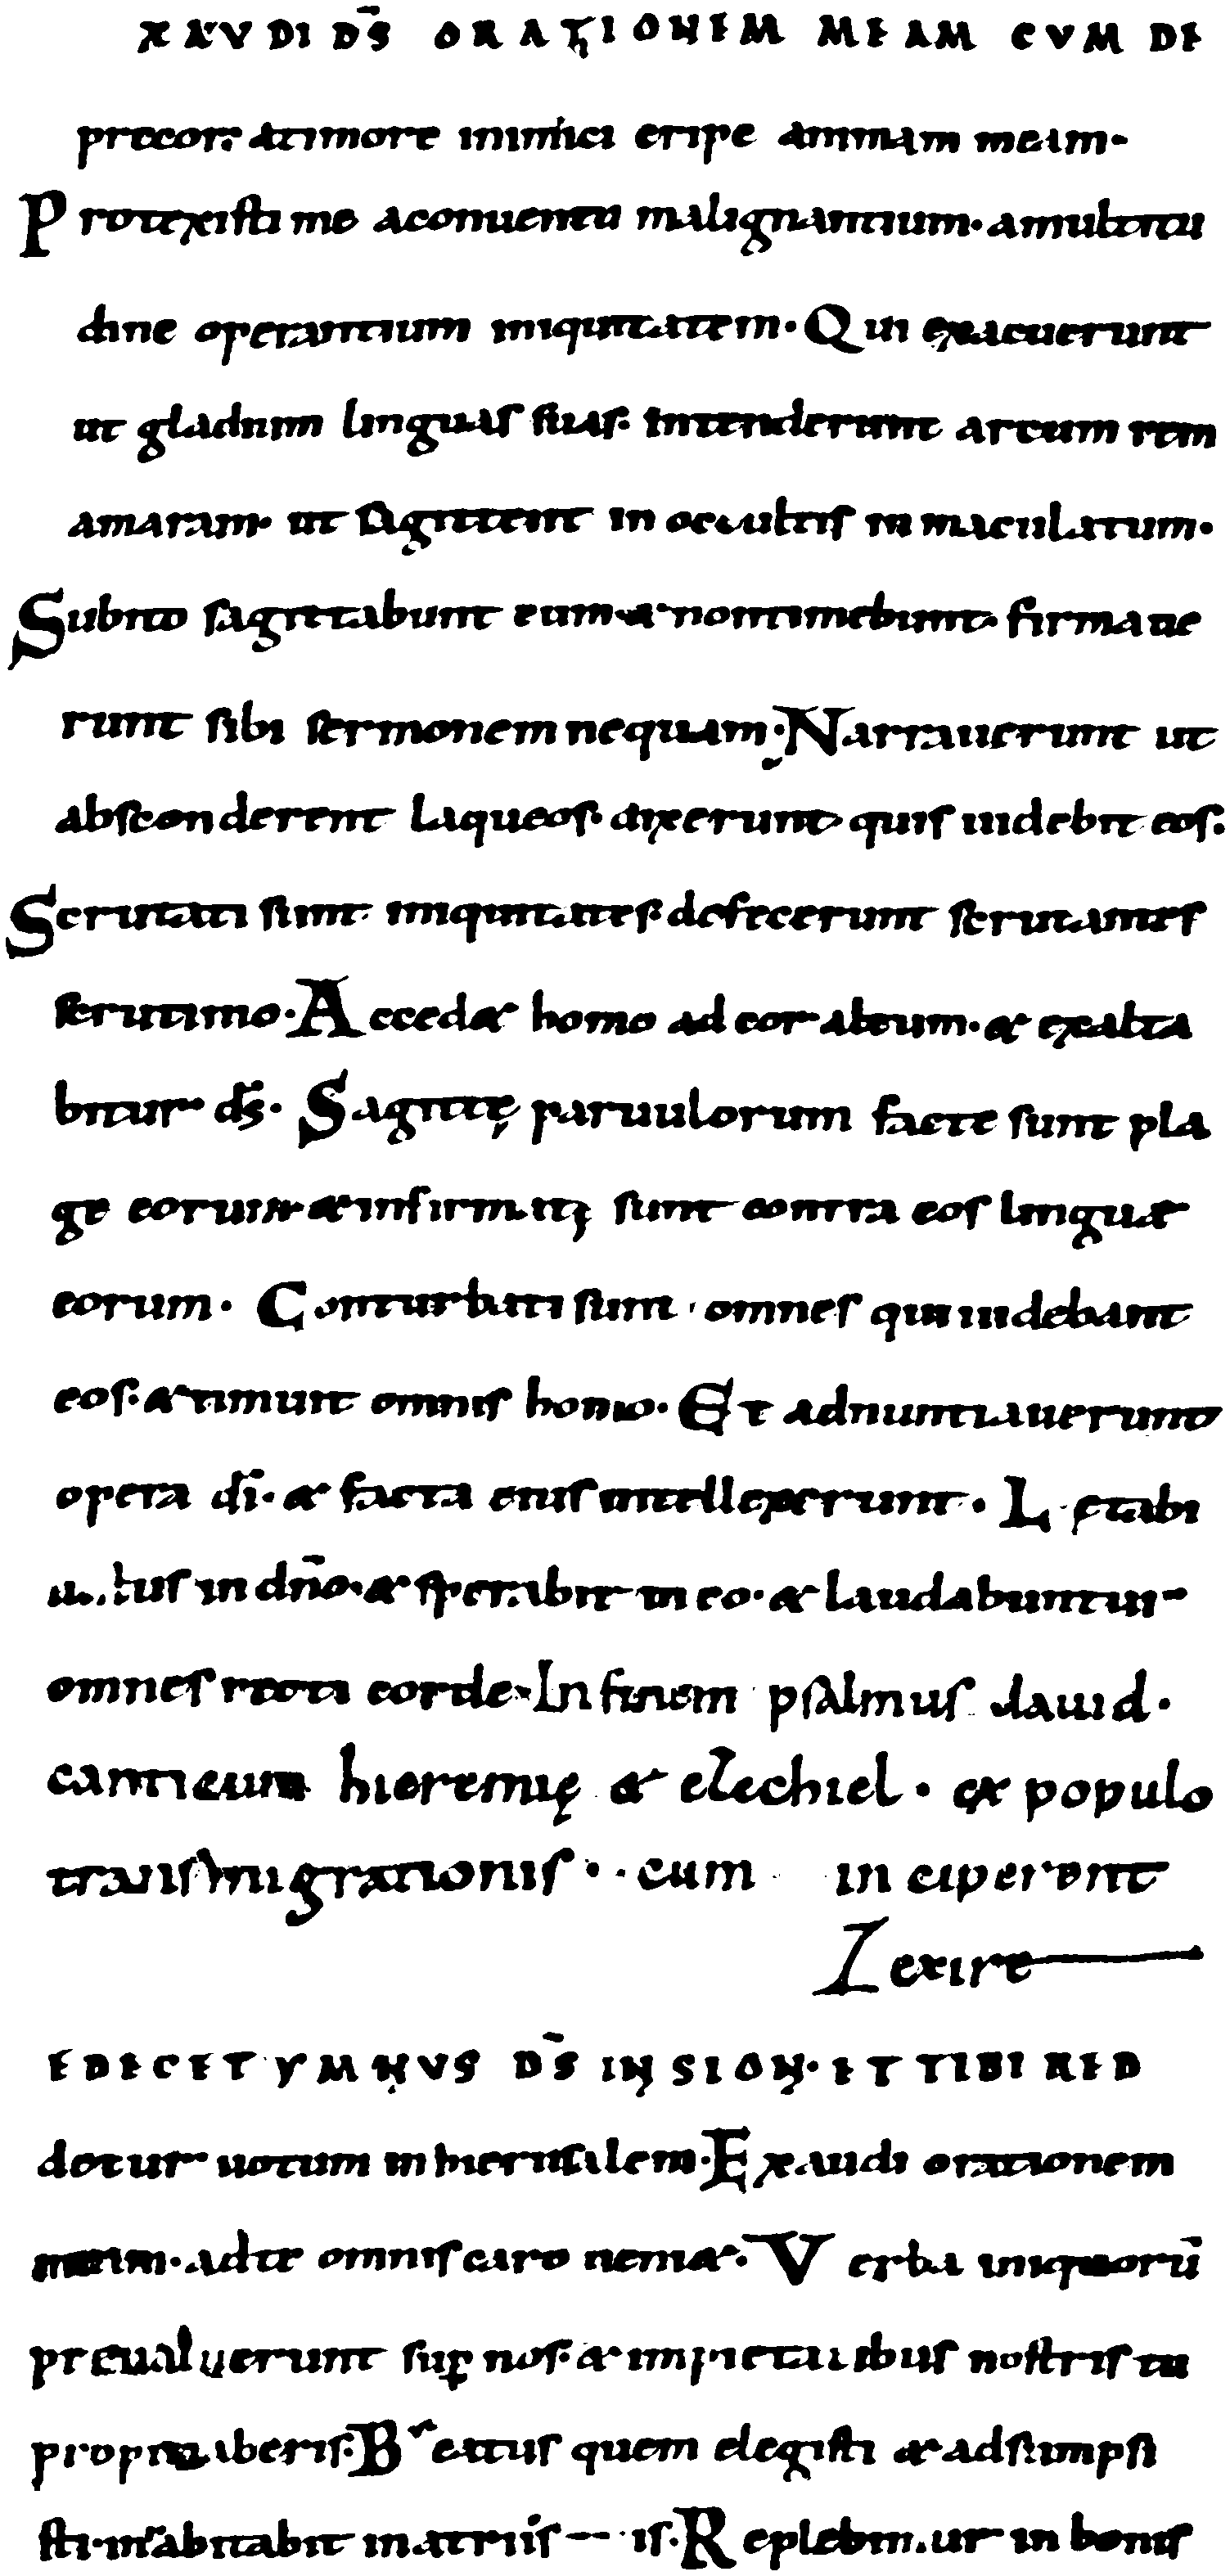 XAUDI DS̄ ORATIONEM MEAM CVM DE
precor; atimore inimici eripe animam meam·
Protexisti me aconuentu malignantium· amultitu
dine operantium iniquitatem· Qui exacuerunt
ut gladium linguas suas· Intenderunt arcum rem
amaram· ut sagittent in occultis inmaculatum·
Subito sagittabunt eum· & nontimebunt· firmaue
runt sibi sermonem nequam· Narrauerunt ut
absconderent laqueos· dixerunt quis uidebit eos·
Scrutati sunt iniquitates· defecerunt scrutantes
scrutinio· Acced& homo ad cor altum· & exalta
bitur ds̄· Sagittę paruulorum facte sunt pla
ge eorum & infirmatę sunt contra eos linguae
eorum· Conturbati sunt omnes qui uidebant
eos· & timuit omnis homo· Et adnuntiauerunt
opera dī· & facta eius intellexerunt· Lętabi
tus in dn̄o· & sperabit in eo· & laudabuntur
omnes recti corde· In finem psalmus dauid·
canticum hieremię & eZechiel· ex populo
transmigrationis· cum inciperent
exire
EDECET YMNUS DS̄ IN SION· ET TIBI RED
detur uotum in hierusalem· Exaudi orationem
meam· adte omnis caro ueni&· Verba iniquorū
preualuerunt sup̱ nos· & impietatibus nostris tu
propitiaberis· Beatus quem elegisti & adsumpsi
sti· inhabitabit inatriis is· Replebimur in bonis